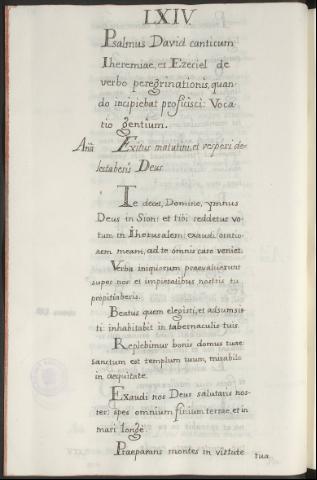 LXIV.
Psalmus David canticum
Iheremiae, et Ezeciel de
verbo peregrinationis, quan-
do incipiebat proficisci: Voca-
tio gentium.
Aña Exitus matutini, et vesperi de-
lectaberis Deus
Te decet, Domine, ymnus
Deus in Sion: et tibi reddetur vo-
tum in Iherusalem: exaudi oratio-
nem meam, ad te omnis caro veniet.
Verba iniquorum praevaluerunt
super nos: et impietatibus nostris tu
propitiaberis.
Beatus quem elegisti, et adsumsis-
ti: inhabitabit in tabernaculis tuis.
Replebimur bonis domus tuae:
sanctum est templum tuum, mirabile
in aequitate.
Exaudi nos Deus salutaris nos-
ter: spes omnium finium terrae, et in
mari longe.
Praeparans montes in virtute
tua